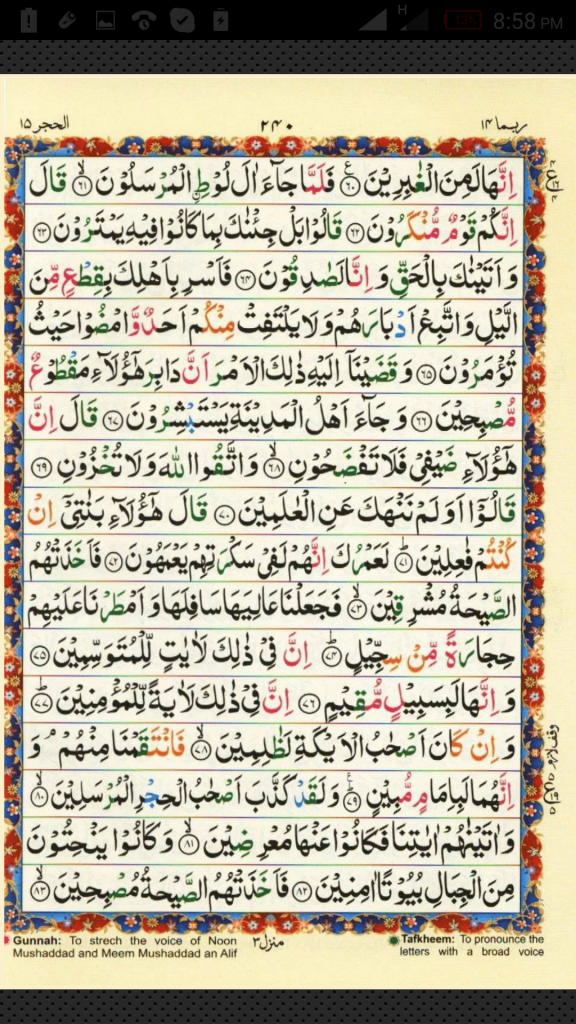 8:58 PM
H
13%
ربما ۱۴
۲۴۰
الحجر ۱۵
اِنَّهَا لَمِنَ الْغٰبِرِيْنَ ﴿۶۰﴾ فَلَمَّا جَآءَ اٰلَ لُوْطِ ِۨالْمُرْسَلُوْنَ ﴿۶۱﴾ قَالَ
اِنَّكُمْ قَوْمٌ مُّنْكَرُوْنَ ﴿۶۲﴾ قَالُوْا بَلْ جِئْنٰكَ بِمَا كَانُوْا فِيْهِ يَمْتَرُوْنَ ﴿۶۳﴾
وَ اَتَيْنٰكَ بِالْحَقِّ وَ اِنَّا لَصٰدِقُوْنَ ﴿۶۴﴾ فَاَسْرِ بِاَهْلِكَ بِقِطْعٍ مِّنَ
الَّيْلِ وَ اتَّبِعْ اَدْبَارَهُمْ وَ لَا يَلْتَفِتْ مِنْكُمْ اَحَدٌ وَّ امْضُوْا حَيْثُ
تُؤْمَرُوْنَ ﴿۶۵﴾ وَ قَضَيْنَاۤ اِلَيْهِ ذٰلِكَ الْاَمْرَ اَنَّ دَابِرَ هٰۤؤُلَآءِ مَقْطُوْعٌ
مُّصْبِحِيْنَ ﴿۶۶﴾ وَ جَآءَ اَهْلُ الْمَدِيْنَةِ يَسْتَبْشِرُوْنَ ﴿۶۷﴾ قَالَ اِنَّ
هٰۤؤُلَآءِ ضَيْفِيْ فَلَا تَفْضَحُوْنِ ﴿۶۸﴾ وَ اتَّقُوا اللّٰهَ وَ لَا تُخْزُوْنِ ﴿۶۹﴾
قَالُوْۤا اَوَ لَمْ نَنْهَكَ عَنِ الْعٰلَمِيْنَ ﴿۷۰﴾ قَالَ هٰۤؤُلَآءِ بَنٰتِيْۤ اِنْ
كُنْتُمْ فٰعِلِيْنَ ﴿۷۱﴾ لَعَمْرُكَ اِنَّهُمْ لَفِيْ سَكْرَتِهِمْ يَعْمَهُوْنَ ﴿۷۲﴾ فَاَخَذَتْهُمُ
الصَّيْحَةُ مُشْرِقِيْنَ ﴿۷۳﴾ فَجَعَلْنَا عَالِيَهَا سَافِلَهَا وَ اَمْطَرْنَا عَلَيْهِمْ
حِجَارَةً مِّنْ سِجِّيْلٍ ﴿۷۴﴾ اِنَّ فِيْ ذٰلِكَ لَاٰيٰتٍ لِّلْمُتَوَسِّمِيْنَ ﴿۷۵﴾
وَ اِنَّهَا لَبِسَبِيْلٍ مُّقِيْمٍ ﴿۷۶﴾ اِنَّ فِيْ ذٰلِكَ لَاٰيَةً لِّلْمُؤْمِنِيْنَ ﴿۷۷﴾
وَ اِنْ كَانَ اَصْحٰبُ الْاَيْكَةِ لَظٰلِمِيْنَ ﴿۷۸﴾ فَانْتَقَمْنَا مِنْهُمْ وَ
اِنَّهُمَا لَبِاِمَامٍ مُّبِيْنٍ ﴿۷۹﴾ وَ لَقَدْ كَذَّبَ اَصْحٰبُ الْحِجْرِ الْمُرْسَلِيْنَ ﴿۸۰﴾
وَ اٰتَيْنٰهُمْ اٰيٰتِنَا فَكَانُوْا عَنْهَا مُعْرِضِيْنَ ﴿۸۱﴾ وَ كَانُوْا يَنْحِتُوْنَ
مِنَ الْجِبَالِ بُيُوْتًا اٰمِنِيْنَ ﴿۸۲﴾ فَاَخَذَتْهُمُ الصَّيْحَةُ مُصْبِحِيْنَ ﴿۸۳﴾
Gunnah: To strech the voice of Noon
Mushaddad and Meem Mushaddad an Alif
منزل۳
Tafkheem: To pronounce the
letters with a broad voice